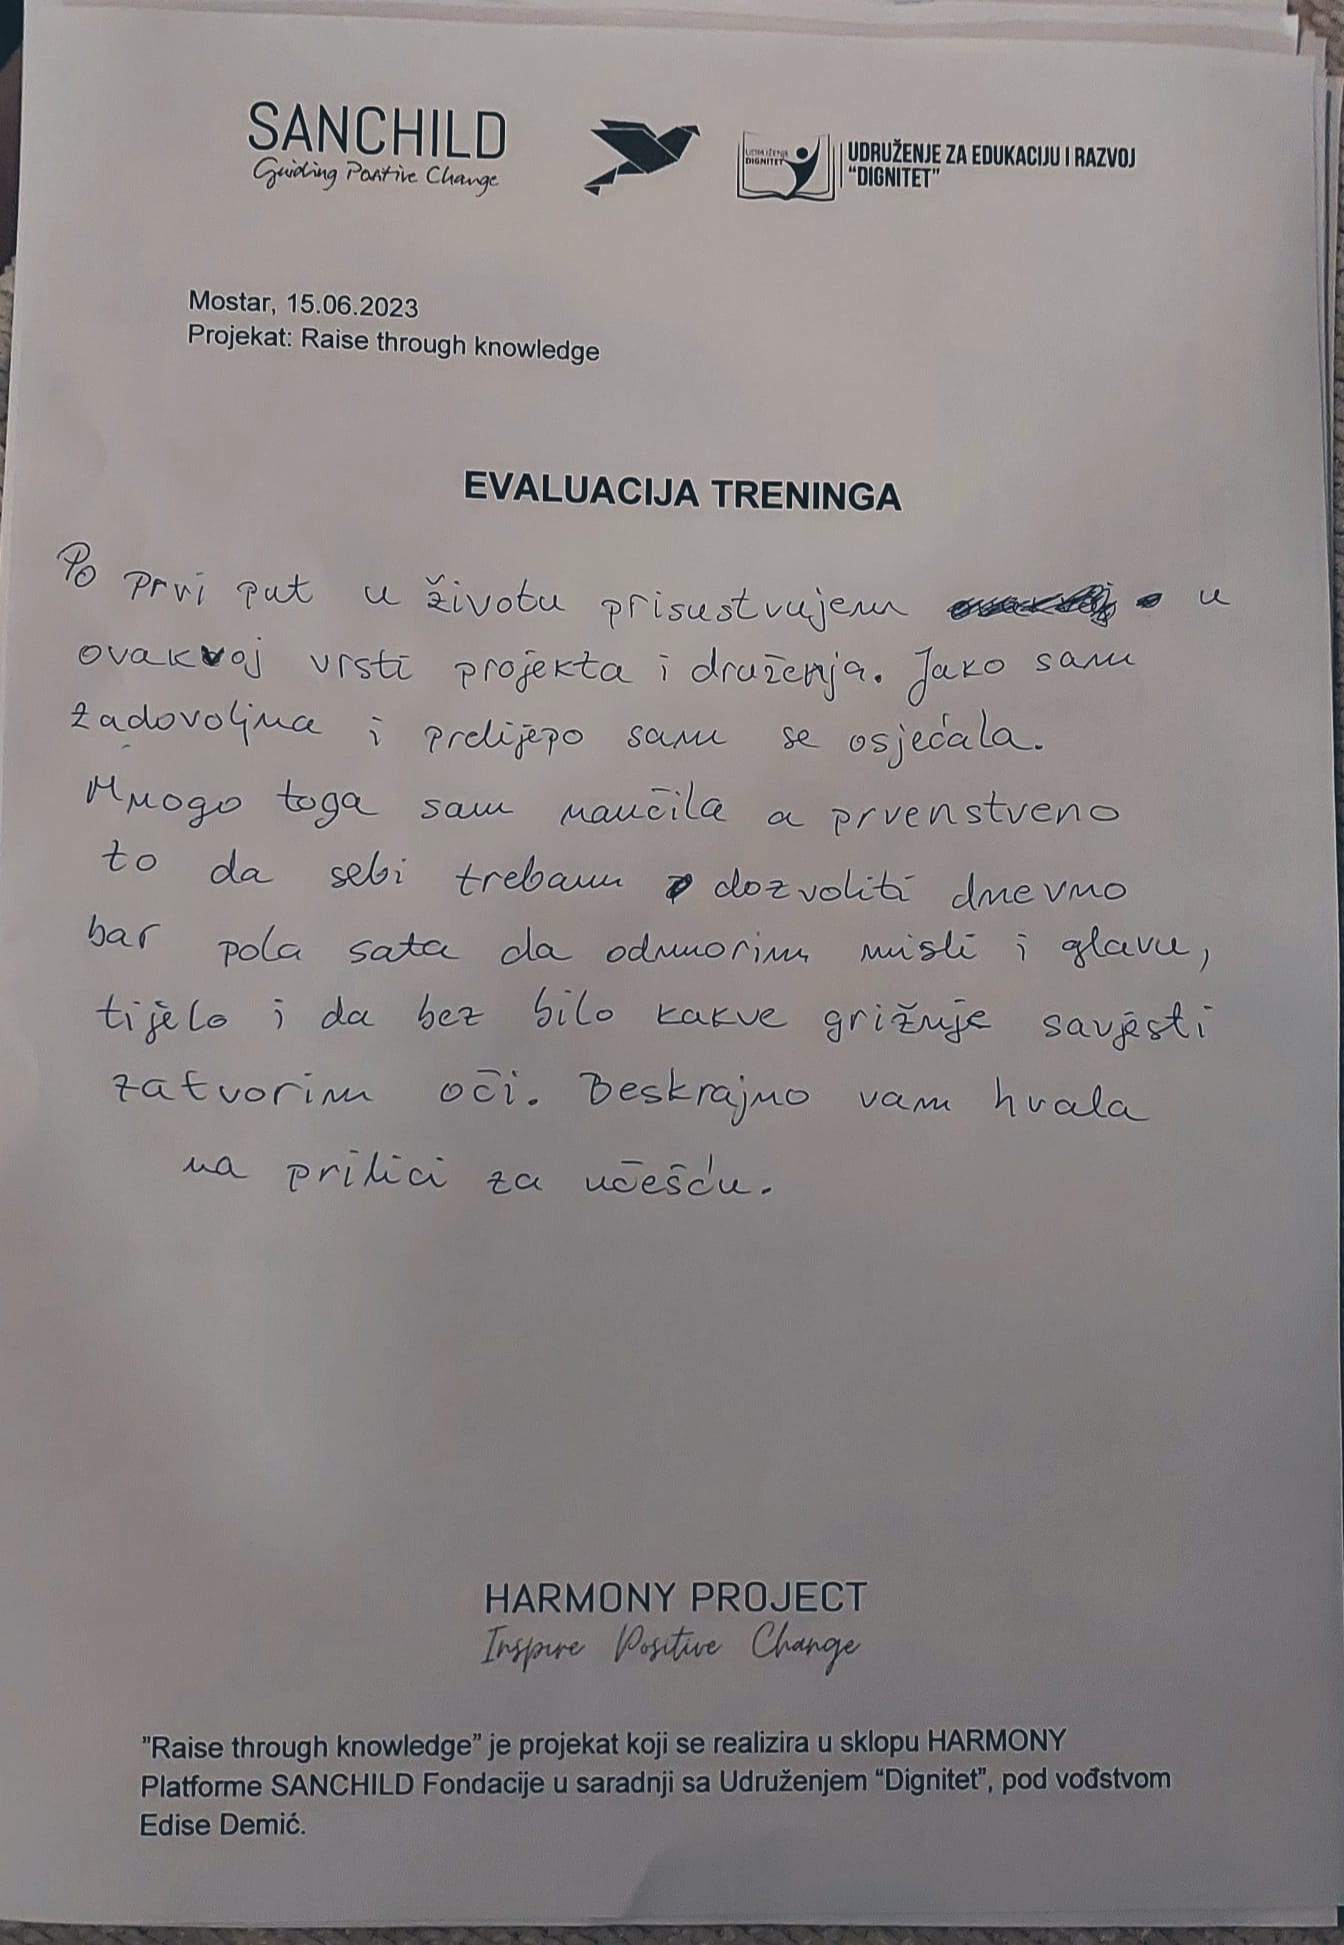 SANCHILD
Guiding Positive Change
UDRUŽENJE
DIGNITET
UDRUŽENJE ZA EDUKACIJU I RAZVOJ
“DIGNITET”
Mostar, 15.06.2023
Projekat: Raise through knowledge
EVALUACIJA TRENINGA
Po prvi put u životu prisustvujem u
ovakvoj vrsti projekta i druženja. Jako sam
zadovoljna i prelijepo sam se osjećala.
Mnogo toga sam naučila a prvenstveno
to da sebi trebam dozvoliti dnevno
bar pola sata da odmorim misli i glavu,
tijelo i da bez bilo kakve grižnje savjesti
zatvorim oči. Beskrajno vam hvala
na prilici za učešću.
HARMONY PROJECT
Inspire Positive Change
”Raise through knowledge” je projekat koji se realizira u sklopu HARMONY
Platforme SANCHILD Fondacije u saradnji sa Udruženjem “Dignitet”, pod vođstvom
Edise Demić.